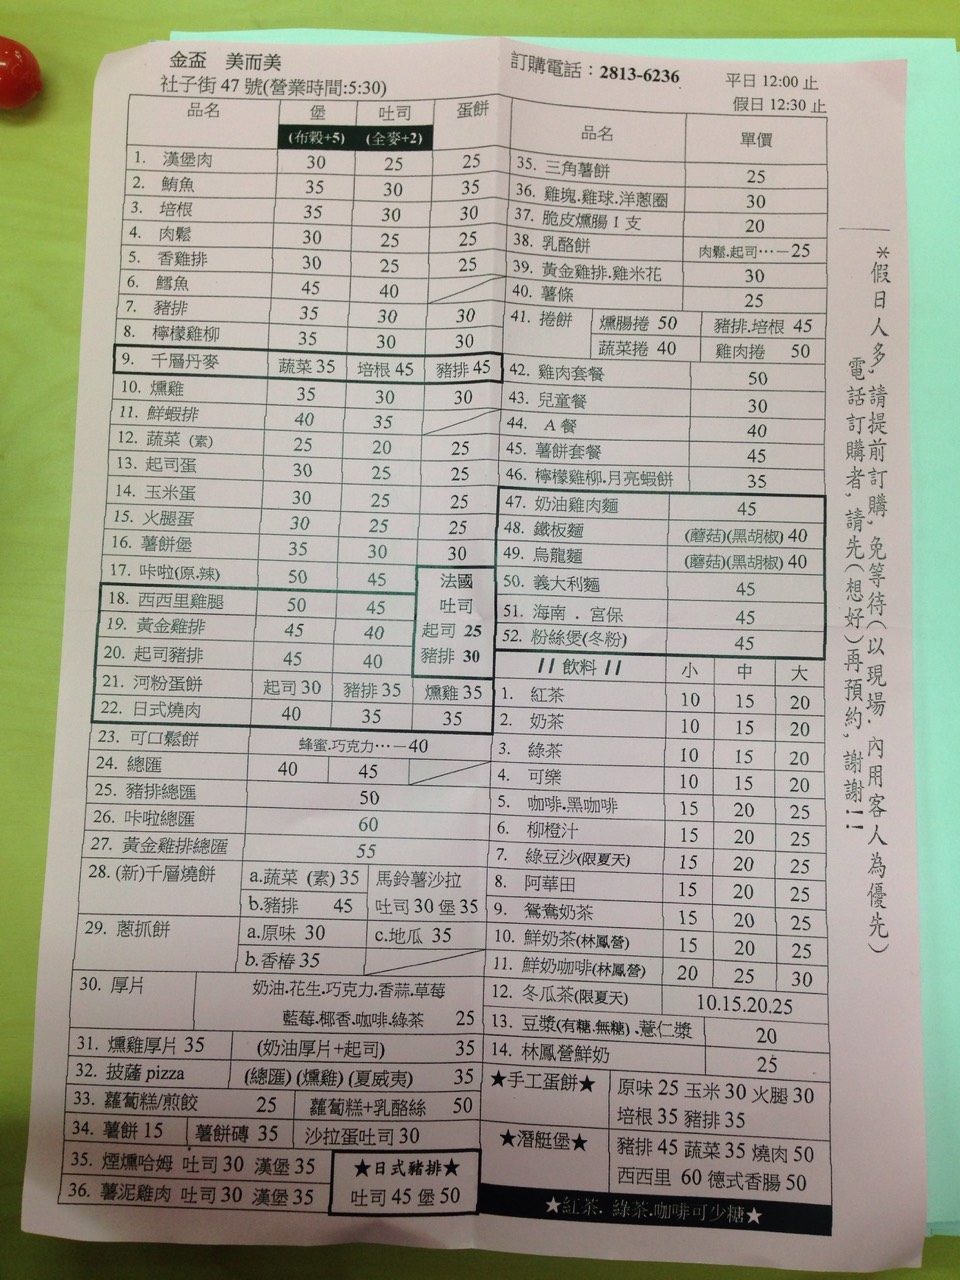 金盃 美而美
社子街 47 號(營業時間:5:30)
訂購電話：2813-6236 平日 12:00 止
假日 12:30 止
品名 堡 吐司 蛋餅
(布穀+5) (全麥+2)
1. 漢堡肉 30 25 25
2. 鮪魚 35 30 35
3. 培根 35 30 30
4. 肉鬆 30 25 25
5. 香雞排 30 25 25
6. 鱈魚 45 40
7. 豬排 35 30 30
8. 檸檬雞柳 35 30 30
9. 千層丹麥 蔬菜 35 培根 45 豬排 45
10. 燻雞 35 30 30
11. 鮮蝦排 40 35
12. 蔬菜 (素) 25 20 25
13. 起司蛋 30 25 25
14. 玉米蛋 30 25 25
15. 火腿蛋 30 25 25
16. 薯餅堡 35 30 30
17. 咔啦(原.辣) 50 45
法國
吐司
起司 25
豬排 30
18. 西西里雞腿 50 45
19. 黃金雞排 45 40
20. 起司豬排 45 40
21. 河粉蛋餅 起司 30 豬排 35 燻雞 35
22. 日式燒肉 40 35 35
23. 可口鬆餅 蜂蜜.巧克力…－40
24. 總匯 40 45
25. 豬排總匯 50
26. 咔啦總匯 60
27. 黃金雞排總匯 55
28. (新)千層燒餅 a.蔬菜 (素) 35 馬鈴薯沙拉
b.豬排 45 吐司 30 堡 35
29. 蔥抓餅 a.原味 30 c.地瓜 35
b.香椿 35
30. 厚片 奶油.花生.巧克力.香蒜.草莓
藍莓.椰香.咖啡.綠茶 25
31. 燻雞厚片 35 (奶油厚片+起司) 35
32. 披薩 pizza (總匯) (燻雞) (夏威夷) 35
33. 蘿蔔糕/煎餃 25 蘿蔔糕+乳酪絲 50
34. 薯餅 15 薯餅磚 35 沙拉蛋吐司 30
35. 煙燻哈姆 吐司 30 漢堡 35
36. 薯泥雞肉 吐司 30 漢堡 35
★日式豬排★
吐司 45 堡 50
品名 單價
35. 三角薯餅 25
36. 雞塊.雞球.洋蔥圈 30
37. 脆皮燻腸 1 支 20
38. 乳酪餅 肉鬆.起司…－25
39. 黃金雞排.雞米花 30
40. 薯條 25
41. 捲餅 燻腸捲 50 豬排.培根 45
蔬菜捲 40 雞肉捲 50
42. 雞肉套餐 50
43. 兒童餐 30
44. A 餐 40
45. 薯餅套餐 45
46. 檸檬雞柳.月亮蝦餅 35
47. 奶油雞肉麵 45
48. 鐵板麵 (蘑菇)(黑胡椒) 40
49. 烏龍麵 (蘑菇)(黑胡椒) 40
50. 義大利麵 45
51. 海南 . 宮保 45
52. 粉絲煲(冬粉) 45
// 飲料 // 小 中 大
1. 紅茶 10 15 20
2. 奶茶 10 15 20
3. 綠茶 10 15 20
4. 可樂 10 15 20
5. 咖啡.黑咖啡 15 20 25
6. 柳橙汁 15 20 25
7. 綠豆沙(限夏天) 15 20 25
8. 阿華田 15 20 25
9. 鴛鴦奶茶 15 20 25
10. 鮮奶茶(林鳳營) 15 20 25
11. 鮮奶咖啡(林鳳營) 20 25 30
12. 冬瓜茶(限夏天) 10.15.20.25
13. 豆漿(有糖.無糖) .薏仁漿 20
14. 林鳳營鮮奶 25
★手工蛋餅★ 原味 25 玉米 30 火腿 30
培根 35 豬排 35
★潛艇堡★ 豬排 45 蔬菜 35 燒肉 50
西西里 60 德式香腸 50
★紅茶. 綠茶.咖啡可少糖★
＊假日人多,請提前訂購,免等待(以現場.內用客人為優先)
電話訂購者,請先(想好)再預約,謝謝!!